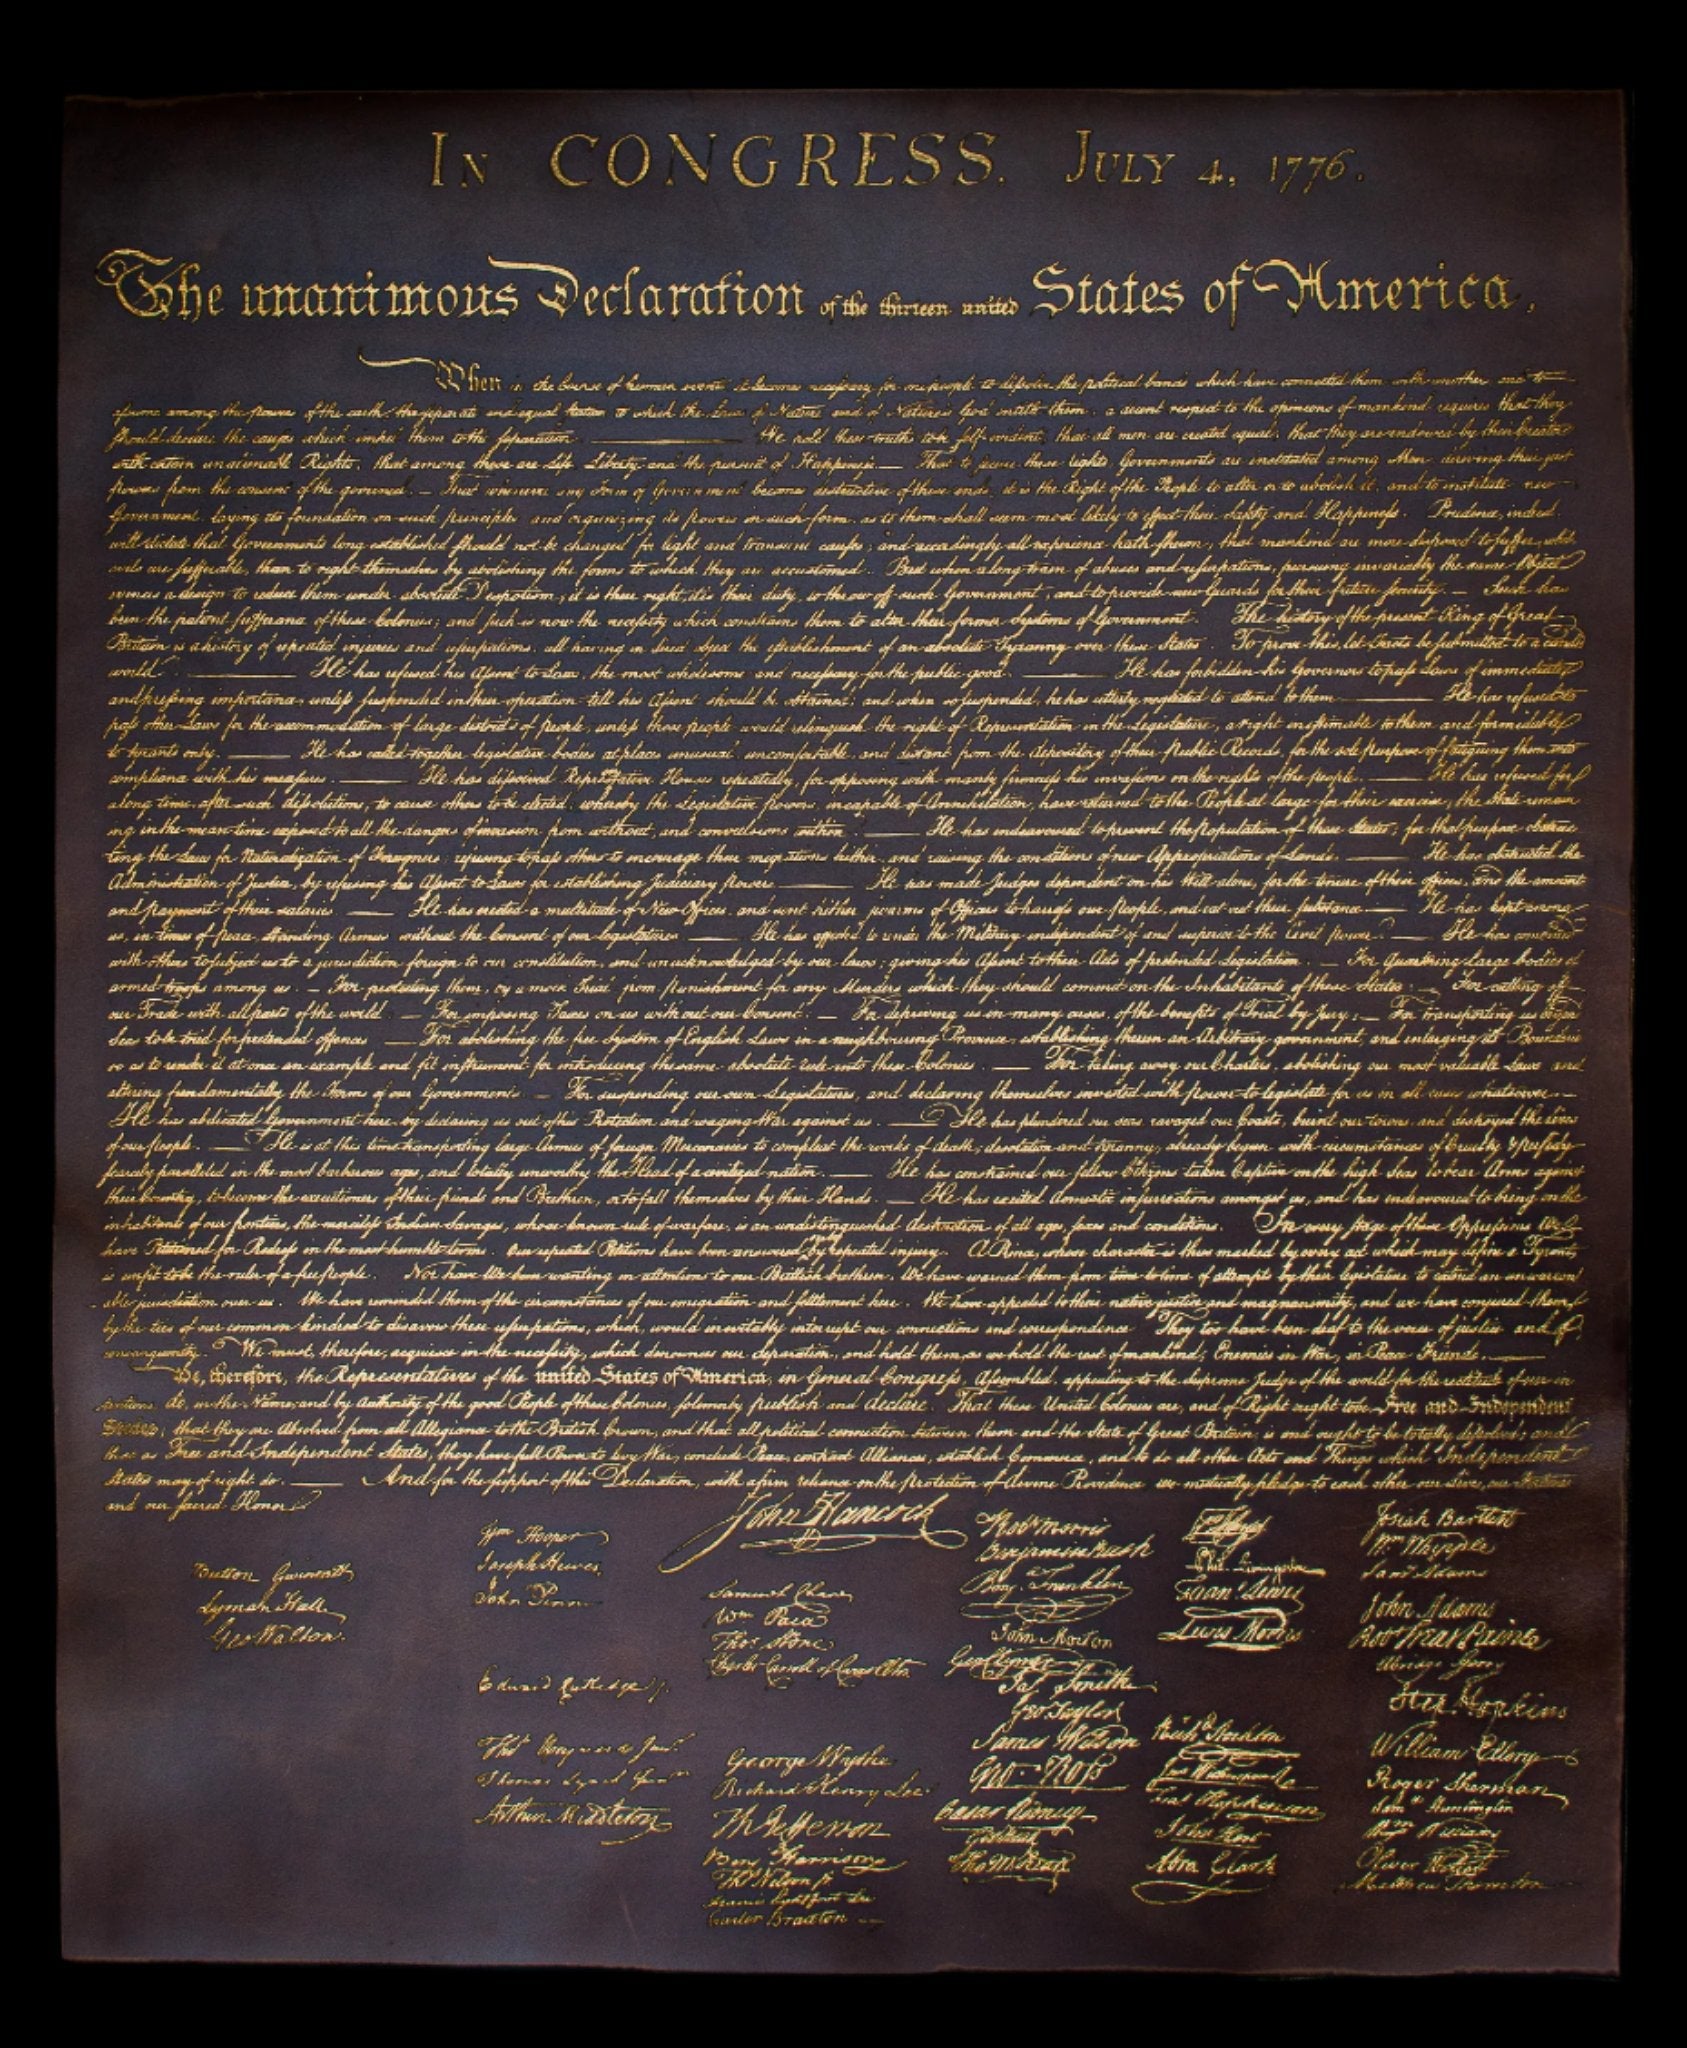 In CONGRESS. July 4, 1776.
The unanimous Declaration of the thirteen united States of America,
When in the Course of human events it becomes necessary for one people to dissolve the political bands which have connected them with another and to
assume among the powers of the earth, the separate and equal station to which the Laws of Nature and of Nature's God entitle them, a decent respect to the opinions of mankind requires that they
should declare the causes which impel them to the separation. We hold these truths to be self-evident, that all men are created equal, that they are endowed by their Creator
with certain unalienable Rights, that among these are Life, Liberty and the pursuit of Happiness. — That to secure these rights, Governments are instituted among Men, deriving their just
powers from the consent of the governed, — That whenever any Form of Government becomes destructive of these ends, it is the Right of the People to alter or to abolish it, and to institute new
Government, laying its foundation on such principles and organizing its powers in such form, as to them shall seem most likely to effect their Safety and Happiness. Prudence, indeed,
will dictate that Governments long established should not be changed for light and transient causes; and accordingly all experience hath shewn, that mankind are more disposed to suffer, while
evils are sufferable, than to right themselves by abolishing the forms to which they are accustomed. But when a long train of abuses and usurpations, pursuing invariably the same Object
evinces a design to reduce them under absolute Despotism, it is their right, it is their duty, to throw off such Government, and to provide new Guards for their future security. — Such has
been the patient sufferance of these Colonies; and such is now the necessity which constrains them to alter their former Systems of Government. The history of the present King of Great
Britain is a history of repeated injuries and usurpations, all having in direct object the establishment of an absolute Tyranny over these States. To prove this, let Facts be submitted to a candid
world. He has refused his Assent to Laws, the most wholesome and necessary for the public good. He has forbidden his Governors to pass Laws of immediate
and pressing importance, unless suspended in their operation till his Assent should be obtained; and when so suspended, he has utterly neglected to attend to them. He has refused to
pass other Laws for the accommodation of large districts of people, unless those people would relinquish the right of Representation in the Legislature, a right inestimable to them and formidable
to tyrants only. He has called together legislative bodies at places unusual, uncomfortable, and distant from the depository of their Public Records, for the sole purpose of fatiguing them into
compliance with his measures. He has dissolved Representative Houses repeatedly, for opposing with manly firmness his invasions on the rights of the people. He has refused for
a long time, after such dissolutions, to cause others to be elected; whereby the Legislative powers, incapable of Annihilation, have returned to the People at large for their exercise; the State remain
ing in the mean time exposed to all the dangers of invasion from without, and convulsions within. He has endeavoured to prevent the population of these States; for that purpose obstruc
ting the Laws for Naturalization of Foreigners; refusing to pass others to encourage their migrations hither, and raising the conditions of new Appropriations of Lands. He has obstructed the
Administration of Justice, by refusing his Assent to Laws for establishing Judiciary powers. He has made Judges dependent on his Will alone, for the tenure of their offices, and the amount
and payment of their salaries. He has erected a multitude of New Offices, and sent hither swarms of Officers to harrass our people, and eat out their substance. He has kept among
us, in times of peace, Standing Armies without the Consent of our legislatures. He has affected to render the Military independent of and superior to the Civil power. He has combined
with others to subject us to a jurisdiction foreign to our constitution, and unacknowledged by our laws; giving his Assent to their Acts of pretended Legislation: — For Quartering large bodies of
armed troops among us: — For protecting them, by a mock Trial, from punishment for any Murders which they should commit on the Inhabitants of these States: — For cutting off
our Trade with all parts of the world: — For imposing Taxes on us without our Consent: — For depriving us in many cases, of the benefits of Trial by Jury: — For transporting us beyond
Seas to be tried for pretended offences — For abolishing the free System of English Laws in a neighbouring Province, establishing therein an Arbitrary government, and enlarging its Boundaries
so as to render it at once an example and fit instrument for introducing the same absolute rule into these Colonies: — For taking away our Charters, abolishing our most valuable Laws and
altering fundamentally the Forms of our Governments: — For suspending our own Legislatures, and declaring themselves invested with power to legislate for us in all cases whatsoever. —
He has abdicated Government here, by declaring us out of his Protection and waging War against us. — He has plundered our seas, ravaged our Coasts, burnt our towns, and destroyed the lives
of our people. — He is at this time transporting large Armies of foreign Mercenaries to compleat the works of death, desolation and tyranny, already begun with circumstances of Cruelty & perfidy
scarcely paralleled in the most barbarous ages, and totally unworthy the Head of a civilized nation. — He has constrained our fellow Citizens taken Captive on the high Seas to bear Arms against
their Country, to become the executioners of their friends and Brethren, or to fall themselves by their Hands. — He has excited domestic insurrections amongst us, and has endeavoured to bring on the
inhabitants of our frontiers, the merciless Indian Savages, whose known rule of warfare, is an undistinguished destruction of all ages, sexes and conditions. In every stage of these Oppressions We
have Petitioned for Redress in the most humble terms: Our repeated Petitions have been answered by repeated injury. A Prince, whose character is thus marked by every act which may define a Tyrant,
is unfit to be the ruler of a free people. Nor have We been wanting in attentions to our Brittish brethren. We have warned them from time to time of attempts by their legislature to extend an unwarrant
able jurisdiction over us. We have reminded them of the circumstances of our emigration and settlement here. We have appealed to their native justice and magnanimity, and we have conjured them
by the ties of our common kindred to disavow these usurpations, which, would inevitably interrupt our connections and correspondence. They too have been deaf to the voice of justice and of
consanguinity. We must, therefore, acquiesce in the necessity, which denounces our Separation, and hold them, as we hold the rest of mankind, Enemies in War, in Peace Friends. —
We, therefore, the Representatives of the united States of America, in General Congress, Assembled, appealing to the Supreme Judge of the world for the rectitude of our in
tentions, do, in the Name, and by Authority of the good People of these Colonies, solemnly publish and declare, That these United Colonies are, and of Right ought to be Free and Independent
States; that they are Absolved from all Allegiance to the British Crown, and that all political connection between them and the State of Great Britain, is and ought to be totally dissolved; and
that as Free and Independent States, they have full Power to levy War, conclude Peace, contract Alliances, establish Commerce, and to do all other Acts and Things which Independent
States may of right do. — And for the support of this Declaration, with a firm reliance on the protection of divine Providence we mutually pledge to each other our Lives, our Fortunes
and our Sacred Honor
Button Gwinnett
Lyman Hall
Geo Walton.
Wm Hooper
Joseph Hewes,
John Penn
Edward Rutledge
Thos Heyward Junr
Thomas Lynch Junr
Arthur Middleton
John Hancock
Samuel Chase
Wm Paca
Thos Stone
Charles Carroll of Carrollton
George Wythe
Richard Henry Lee
Th Jefferson
Benj Harrison
Thos Nelson jr
Francis Lightfoot Lee
Carter Braxton
Robt Morris
Benjamin Rush
Benj Franklin
John Morton
Geo Clymer
Jas Smith
Geo Taylor
James Wilson
Geo Ross
Caesar Rodney
Geo Read
Tho M:Kean
Phil. Livingston
Frans Lewis
Lewis Morris
Richd Stockton
Jno Witherspoon
Fras Hopkinson
John Hart
Abra Clark
Josiah Bartlett
Wm Whipple
Saml Adams
John Adams
Robt Treat Paine
Elbridge Gerry
Step Hopkins
William Ellery
Roger Sherman
Saml Huntington
Wm Williams
Oliver Wolcott
Matthew Thornton